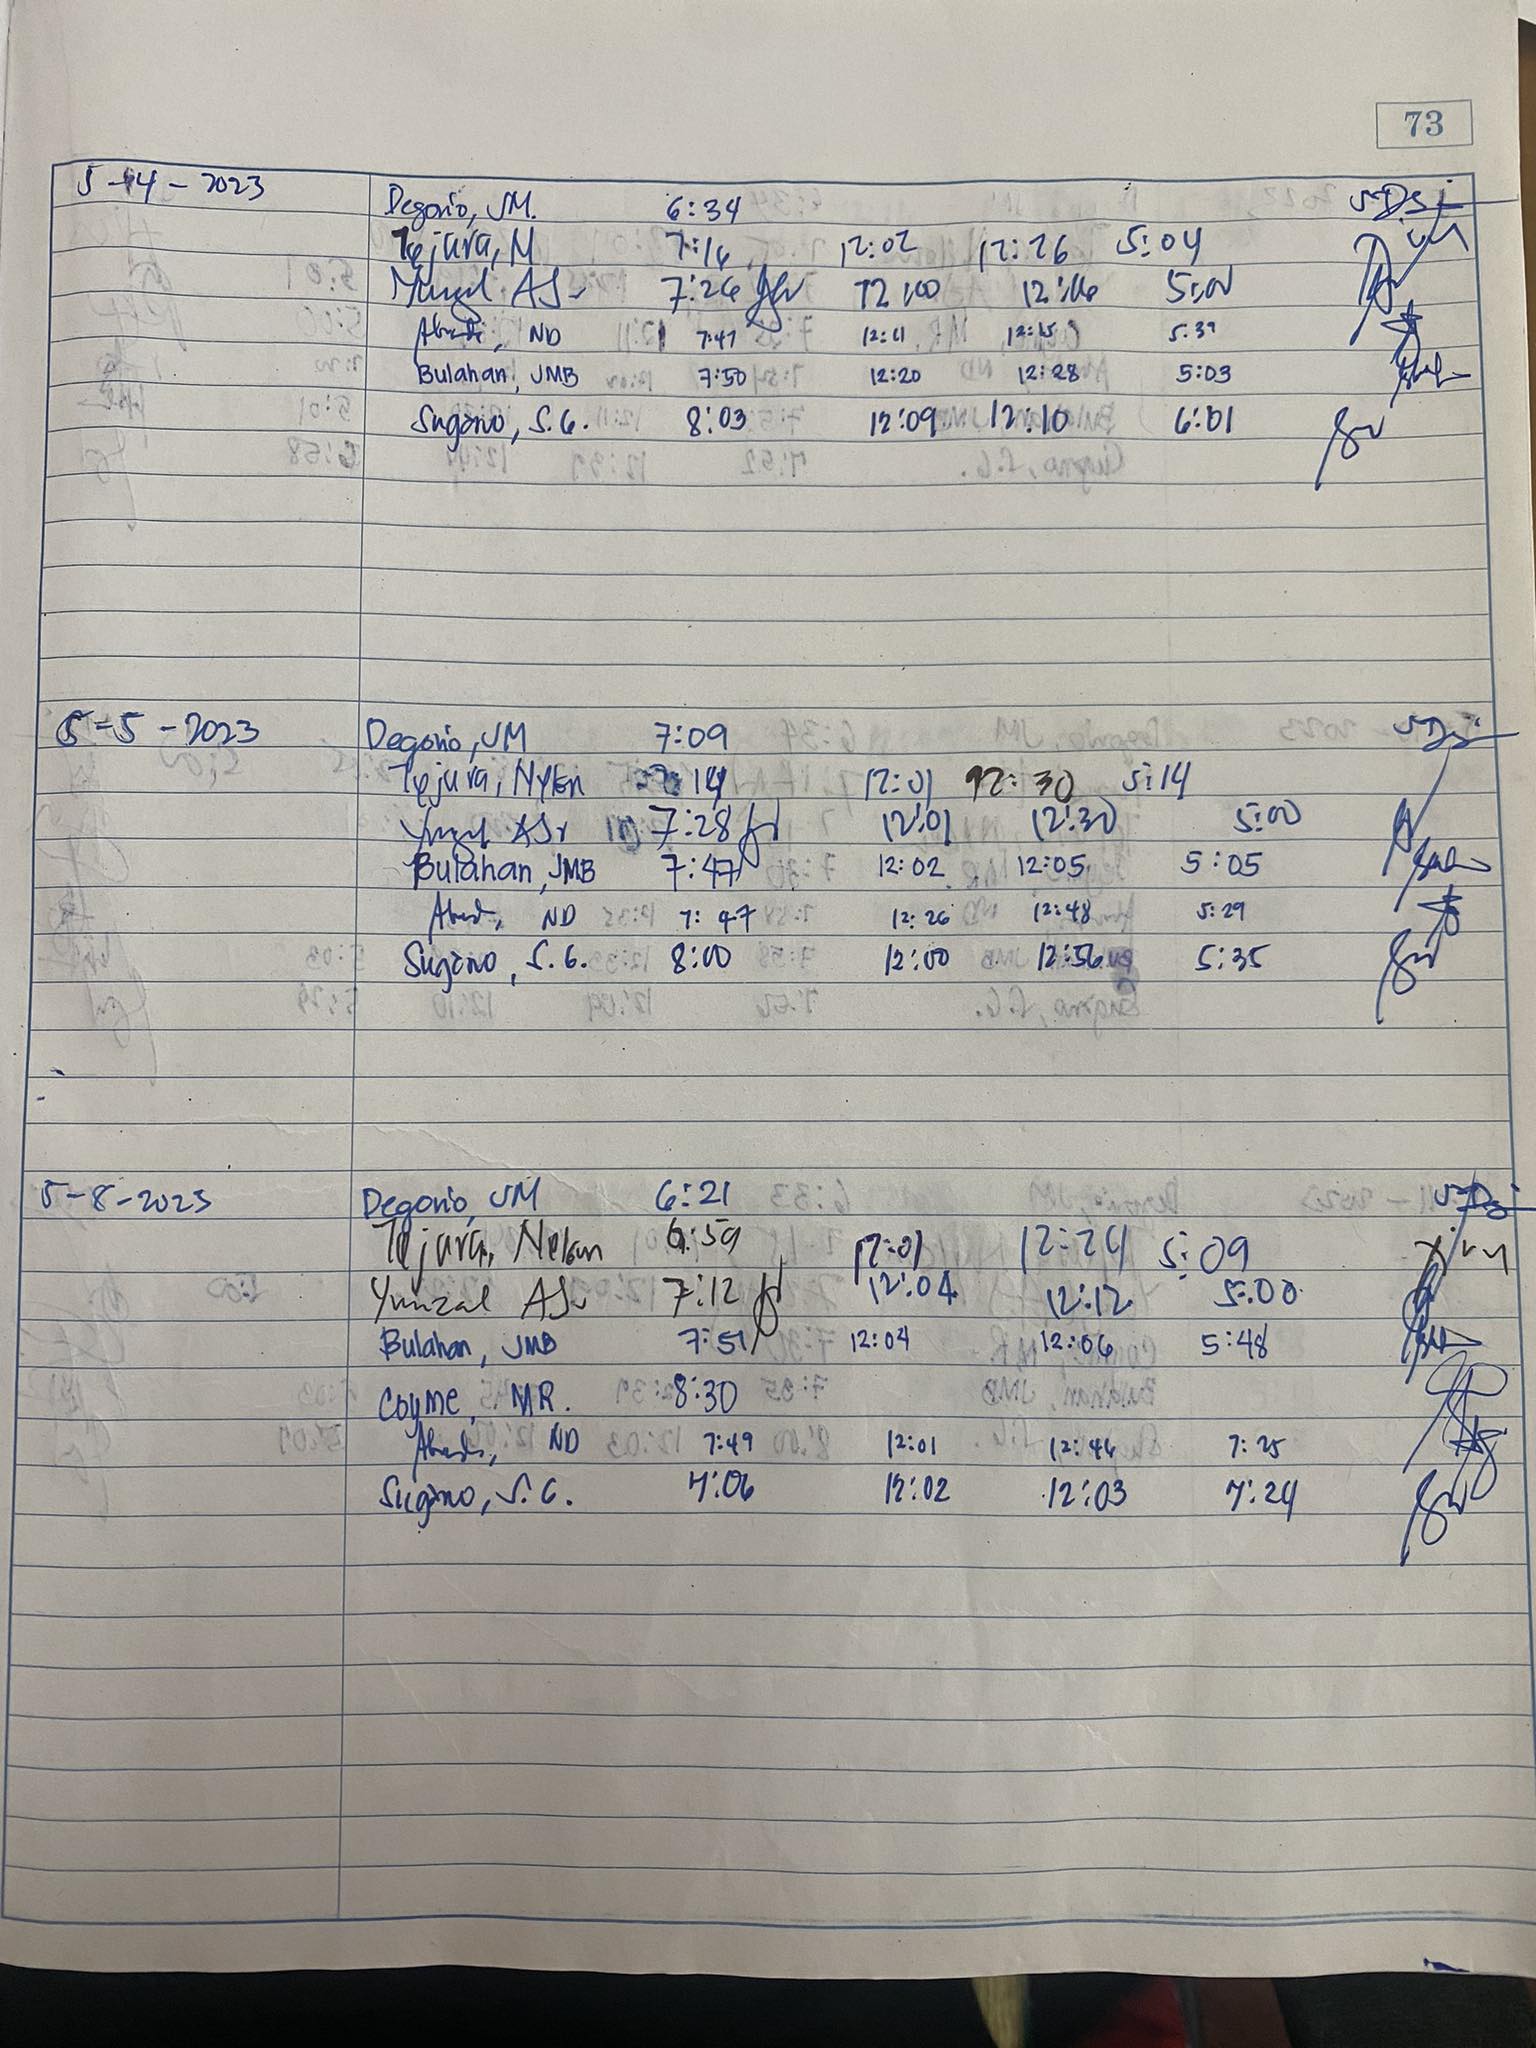 73
5-4-2023 Degorio, JM. 6:34
Tejura, M 7:16 12:02 12:26 5:04
Yunzal ASr 7:26 12:00 12:16 5:00
ND 7:47 12:11 12:15 5:39
Bulahan, JMB 7:50 12:20 12:28 5:03
Sugano, S.G. 8:03 12:09 12:10 6:01
5-5-2023 Degorio, JM 7:09
Tejura, 14 12:01 12:30 5:14
Yunzal ASr 7:28 12:01 12:30 5:00
Bulahan, JMB 7:47 12:02 12:05 5:05
ND 7:47 12:26 12:48 5:29
Sugano, S.G. 8:00 12:00 12:56 5:35
5-8-2023 Degorio, JM 6:21
Tejura, Nelson 6:59 12:01 12:24 5:09
Yunzal ASr 7:12 12:04 12:12 5:00
Bulahan, JMB 7:51 12:04 12:06 5:48
Coyme, MR. 8:30
ND 7:49 12:01 12:46 7:25
Sugano, S.G. 7:06 12:02 12:03 7:24